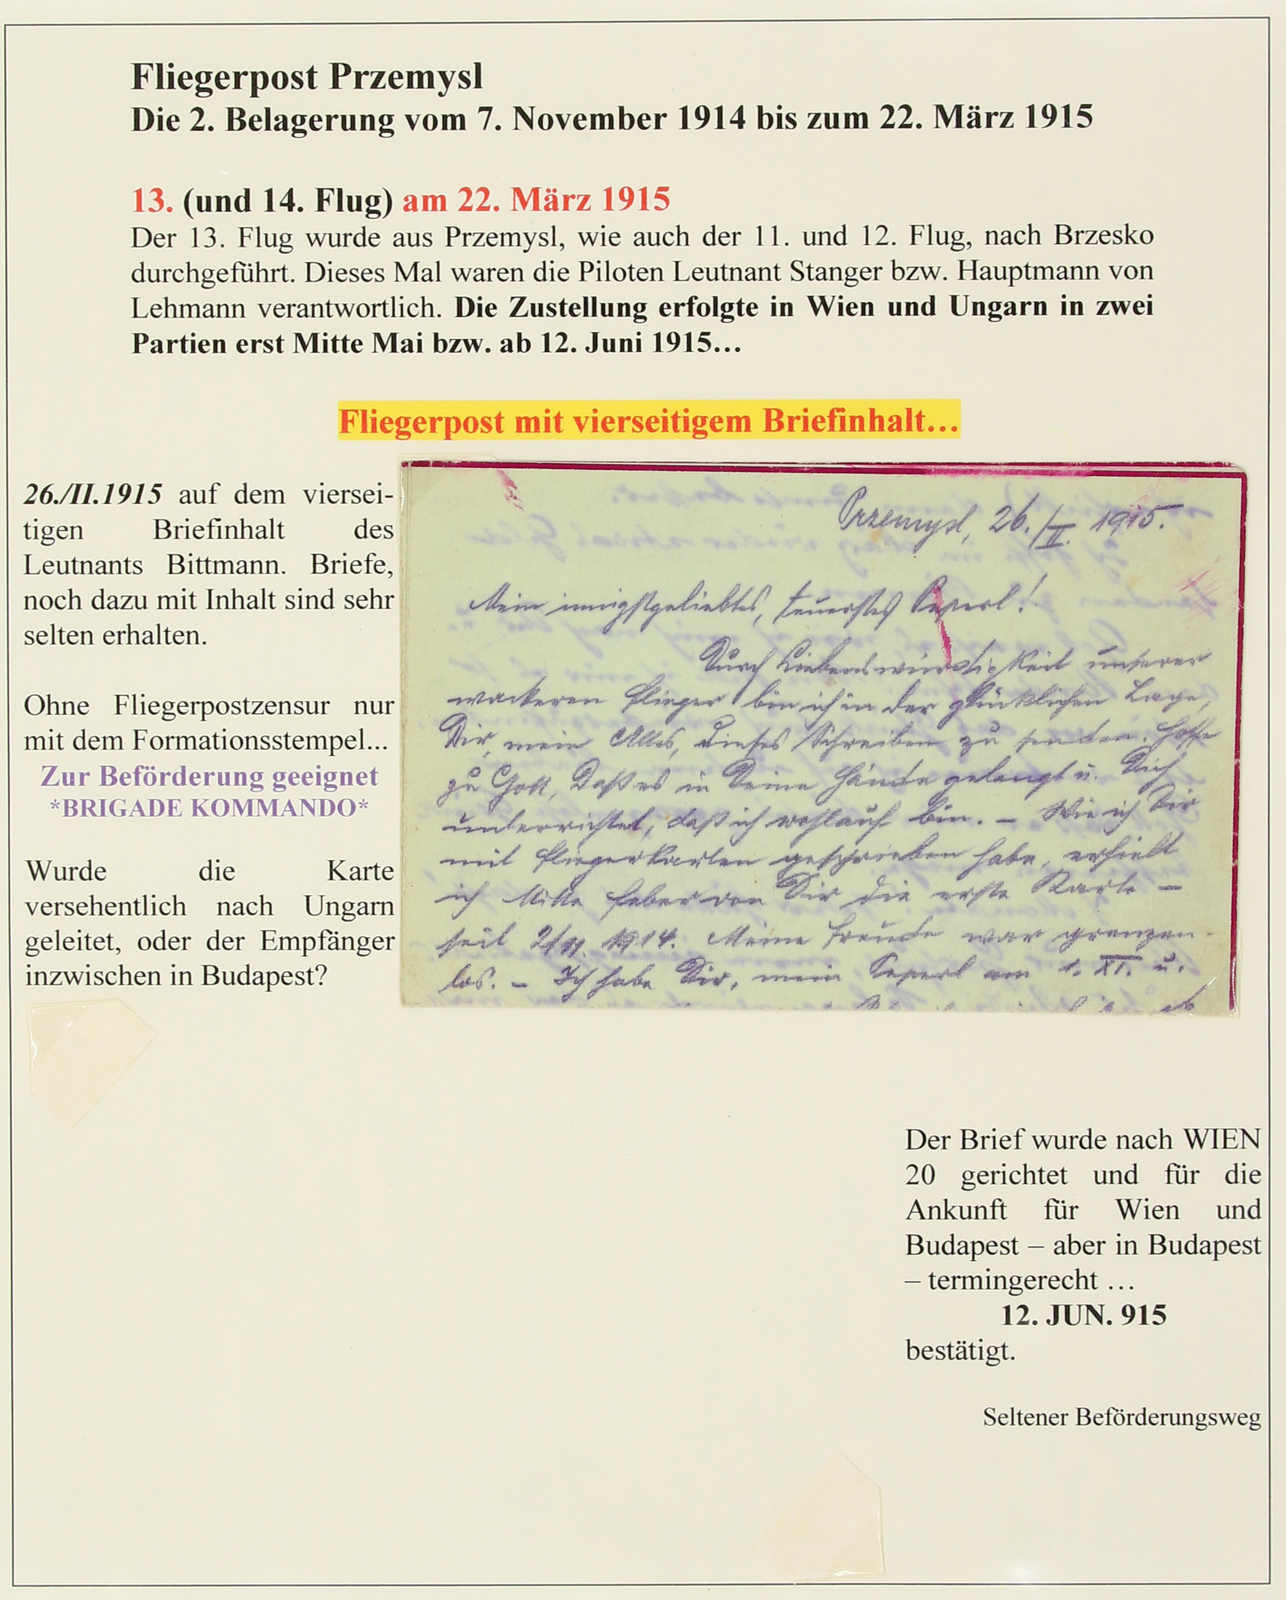 Fliegerpost Przemysl
Die 2. Belagerung vom 7. November 1914 bis zum 22. März 1915
13. (und 14. Flug) am 22. März 1915
Der 13. Flug wurde aus Przemysl, wie auch der 11. und 12. Flug, nach Brzesko
durchgeführt. Dieses Mal waren die Piloten Leutnant Stanger bzw. Hauptmann von
Lehmann verantwortlich. Die Zustellung erfolgte in Wien und Ungarn in zwei
Partien erst Mitte Mai bzw. ab 12. Juni 1915…
Fliegerpost mit vierseitigem Briefinhalt…
26./II.1915 auf dem viersei-
tigen Briefinhalt des
Leutnants Bittmann. Briefe,
noch dazu mit Inhalt sind sehr
selten erhalten.
Ohne Fliegerpostzensur nur
mit dem Formationsstempel...
Zur Beförderung geeignet
*BRIGADE KOMMANDO*
Wurde die Karte
versehentlich nach Ungarn
geleitet, oder der Empfänger
inzwischen in Budapest?
Przemysl, 26./II. 1915.
Mein innigstgeliebtes, teuerstes Peperl!
Durch Liebenswürdigkeit unserer
wackeren Flieger bin ich in der glücklichen Lage,
Dir, mein Alles, dieses Schreiben zu senden. Hoffe
zu Gott, daß es in Deine Hände gelangt u. Dich
unterrichtet, daß ich wohlauf bin. – Wie ich Dir
mit Fliegerkarten geschrieben habe, erhielt
ich Mitte Feber von Dir die erste Karte –
seit 2/11. 1914. Meine Freude war grenzen-
los. – Ich habe Dir, mein Peperl am 1. XI. u.
Der Brief wurde nach WIEN
20 gerichtet und für die
Ankunft für Wien und
Budapest – aber in Budapest
– termingerecht …
12. JUN. 915
bestätigt.
Seltener Beförderungsweg